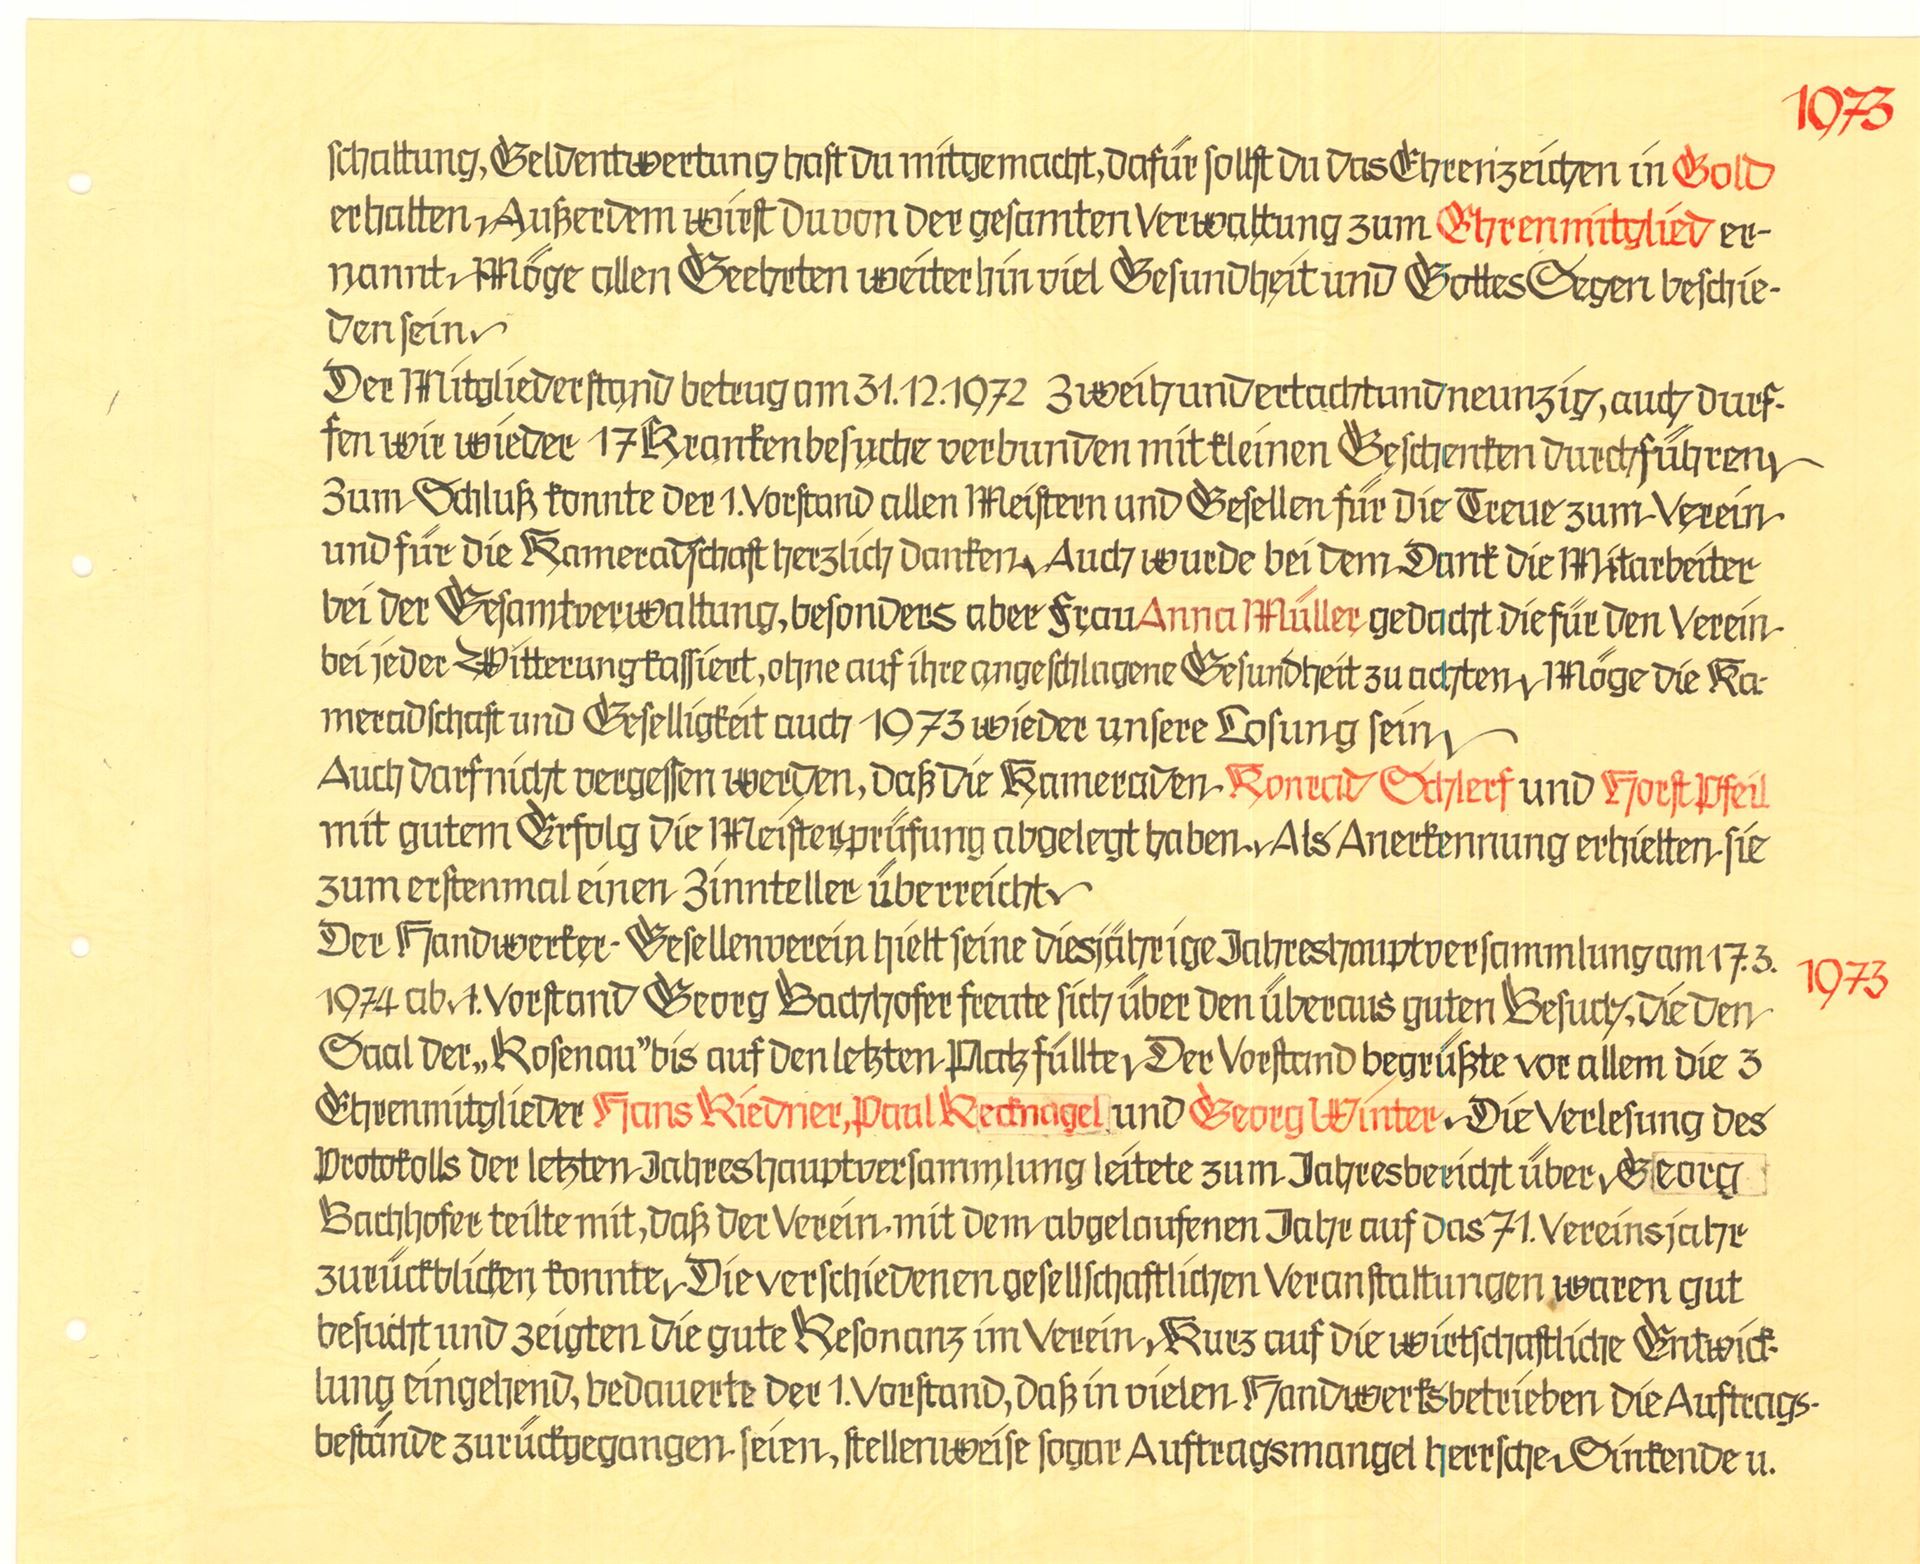 1973
schaltung, Geldentwertung hast du mitgemacht, dafür sollst du das Ehrenzeichen in Gold
erhalten. Außerdem wirst du von der gesamten Verwaltung zum Ehrenmitglied er-
nannt. Möge allen Geehrten weiterhin viel Gesundheit und Gottes Segen beschie-
den sein.
Der Mitgliederstand betrug am 31.12.1972 Zweihundertachtundneunzig, auch durf-
fen wir wieder 17 Krankenbesuche verbunden mit kleinen Geschenken durchführen.
Zum Schluß konnte der 1. Vorstand allen Meistern und Gesellen für die Treue zum Verein
und für die Kameradschaft herzlich danken. Auch wurde bei dem Dank die Mitarbeiter
bei der Gesamtverwaltung, besonders aber Frau Anna Müller gedacht die für den Verein
bei jeder Witterung kassiert, ohne auf ihre angeschlagene Gesundheit zu achten. Möge die Ka-
meradschaft und Geselligkeit auch 1973 wieder unsere Losung sein.
Auch darf nicht vergessen werden, daß die Kameraden Konrad Schlerf und Horst Pfeil
mit gutem Erfolg die Meisterprüfung abgelegt haben. Als Anerkennung erhielten sie
zum erstenmal einen Zinnteller überreicht.
Der Handwerker-Gesellenverein hielt seine diesjährige Jahreshauptversammlung am 17.3.
1973
1974 ab. 1. Vorstand Georg Bachhofer freute sich über den überaus guten Besuch, die den
Saal der „Rosenau” bis auf den letzten Platz füllte. Der Vorstand begrüßte vor allem die 3
Ehrenmitglieder Hans Riedner, Paul Recknagel und Georg Winter. Die Verlesung des
Protokolls der letzten Jahreshauptversammlung leitete zum Jahresbericht über. Georg
Bachhofer teilte mit, daß der Verein mit dem abgelaufenen Jahr auf das 71. Vereinsjahr
zurückblicken konnte. Die verschiedenen gesellschaftlichen Veranstaltungen waren gut
besucht und zeigten die gute Resonanz im Verein. Kurz auf die wirtschaftliche Entwick-
lung eingehend, bedauerte der 1. Vorstand, daß in vielen Handwerksbetrieben die Auftrags-
bestände zurückgegangen seien, stellenweise sogar Auftragsmangel herrsche. Sinkende u.